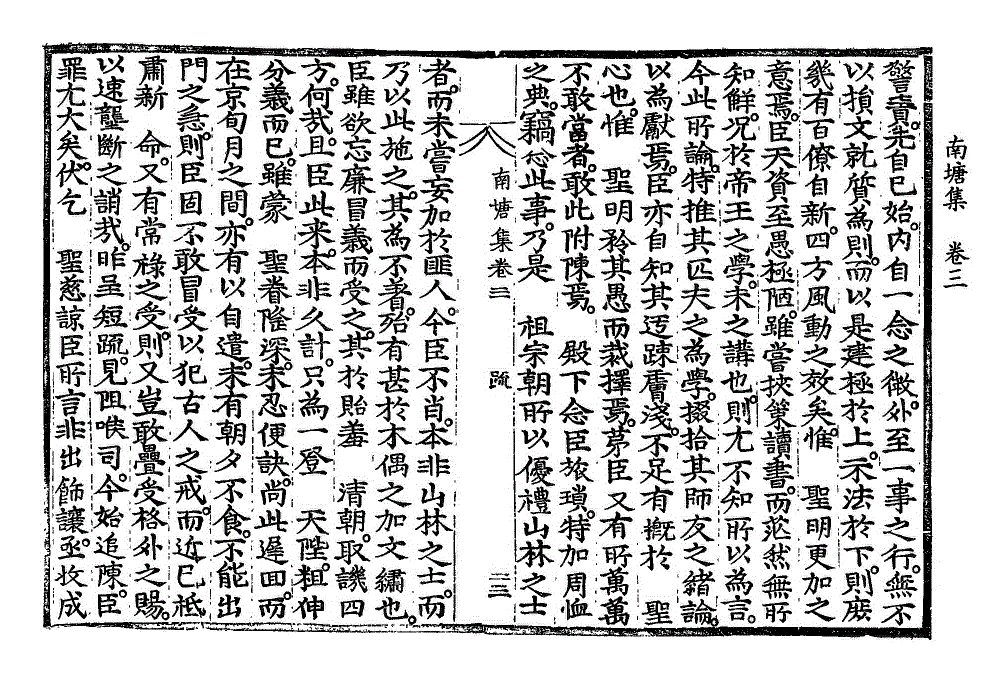 南塘集 卷三
警責先自已始內自一念之微外至一事之行無不
以損文就質為則而以是建極於上示法於下則庶
幾有百僚自新四方風動之效矣惟 聖明更加之
意焉臣天資至愚極陋雖嘗挾策讀書而茫然無所
知鮮況於帝王之學未之講也則尤不知所以為言
今此所論特推其匹夫之為學掇拾其師友之緒論
以為獻焉臣亦自知其迂踈膚淺不足有槪於 聖
心也惟 聖明矜其愚而裁擇焉茅臣又有所萬萬
不敢當者敢此附陳焉 殿下念臣旅瑣特加周恤
之典竊念此事乃是 祖宗朝所以優禮山林之士
南塘集卷三 疏 三三
者而未嘗妄加於匪人今臣不肖本非山林之士而
乃以此施之其為不着殆有甚於木偶之加文繡也
臣雖欲忘廉冒義而受之其於貽羞 清朝取譏四
方何㢤且臣此來本非久計只為一登 天陛粗伸
分義而已雖蒙 聖眷隆深未忍便訣尚此遲回而
在京旬月之間亦有以自遣未有朝夕不食不能出
門之急則臣固不敢冒受以犯古人之戒而近已祗
肅新 命又有常祿之受則又豈敢疊受格外之賜
以速壟斷之誚㢤昨呈短疏見阻喉司今始追陳臣
罪尤大矣伏乞 聖慈諒臣所言非出飾讓亟收成